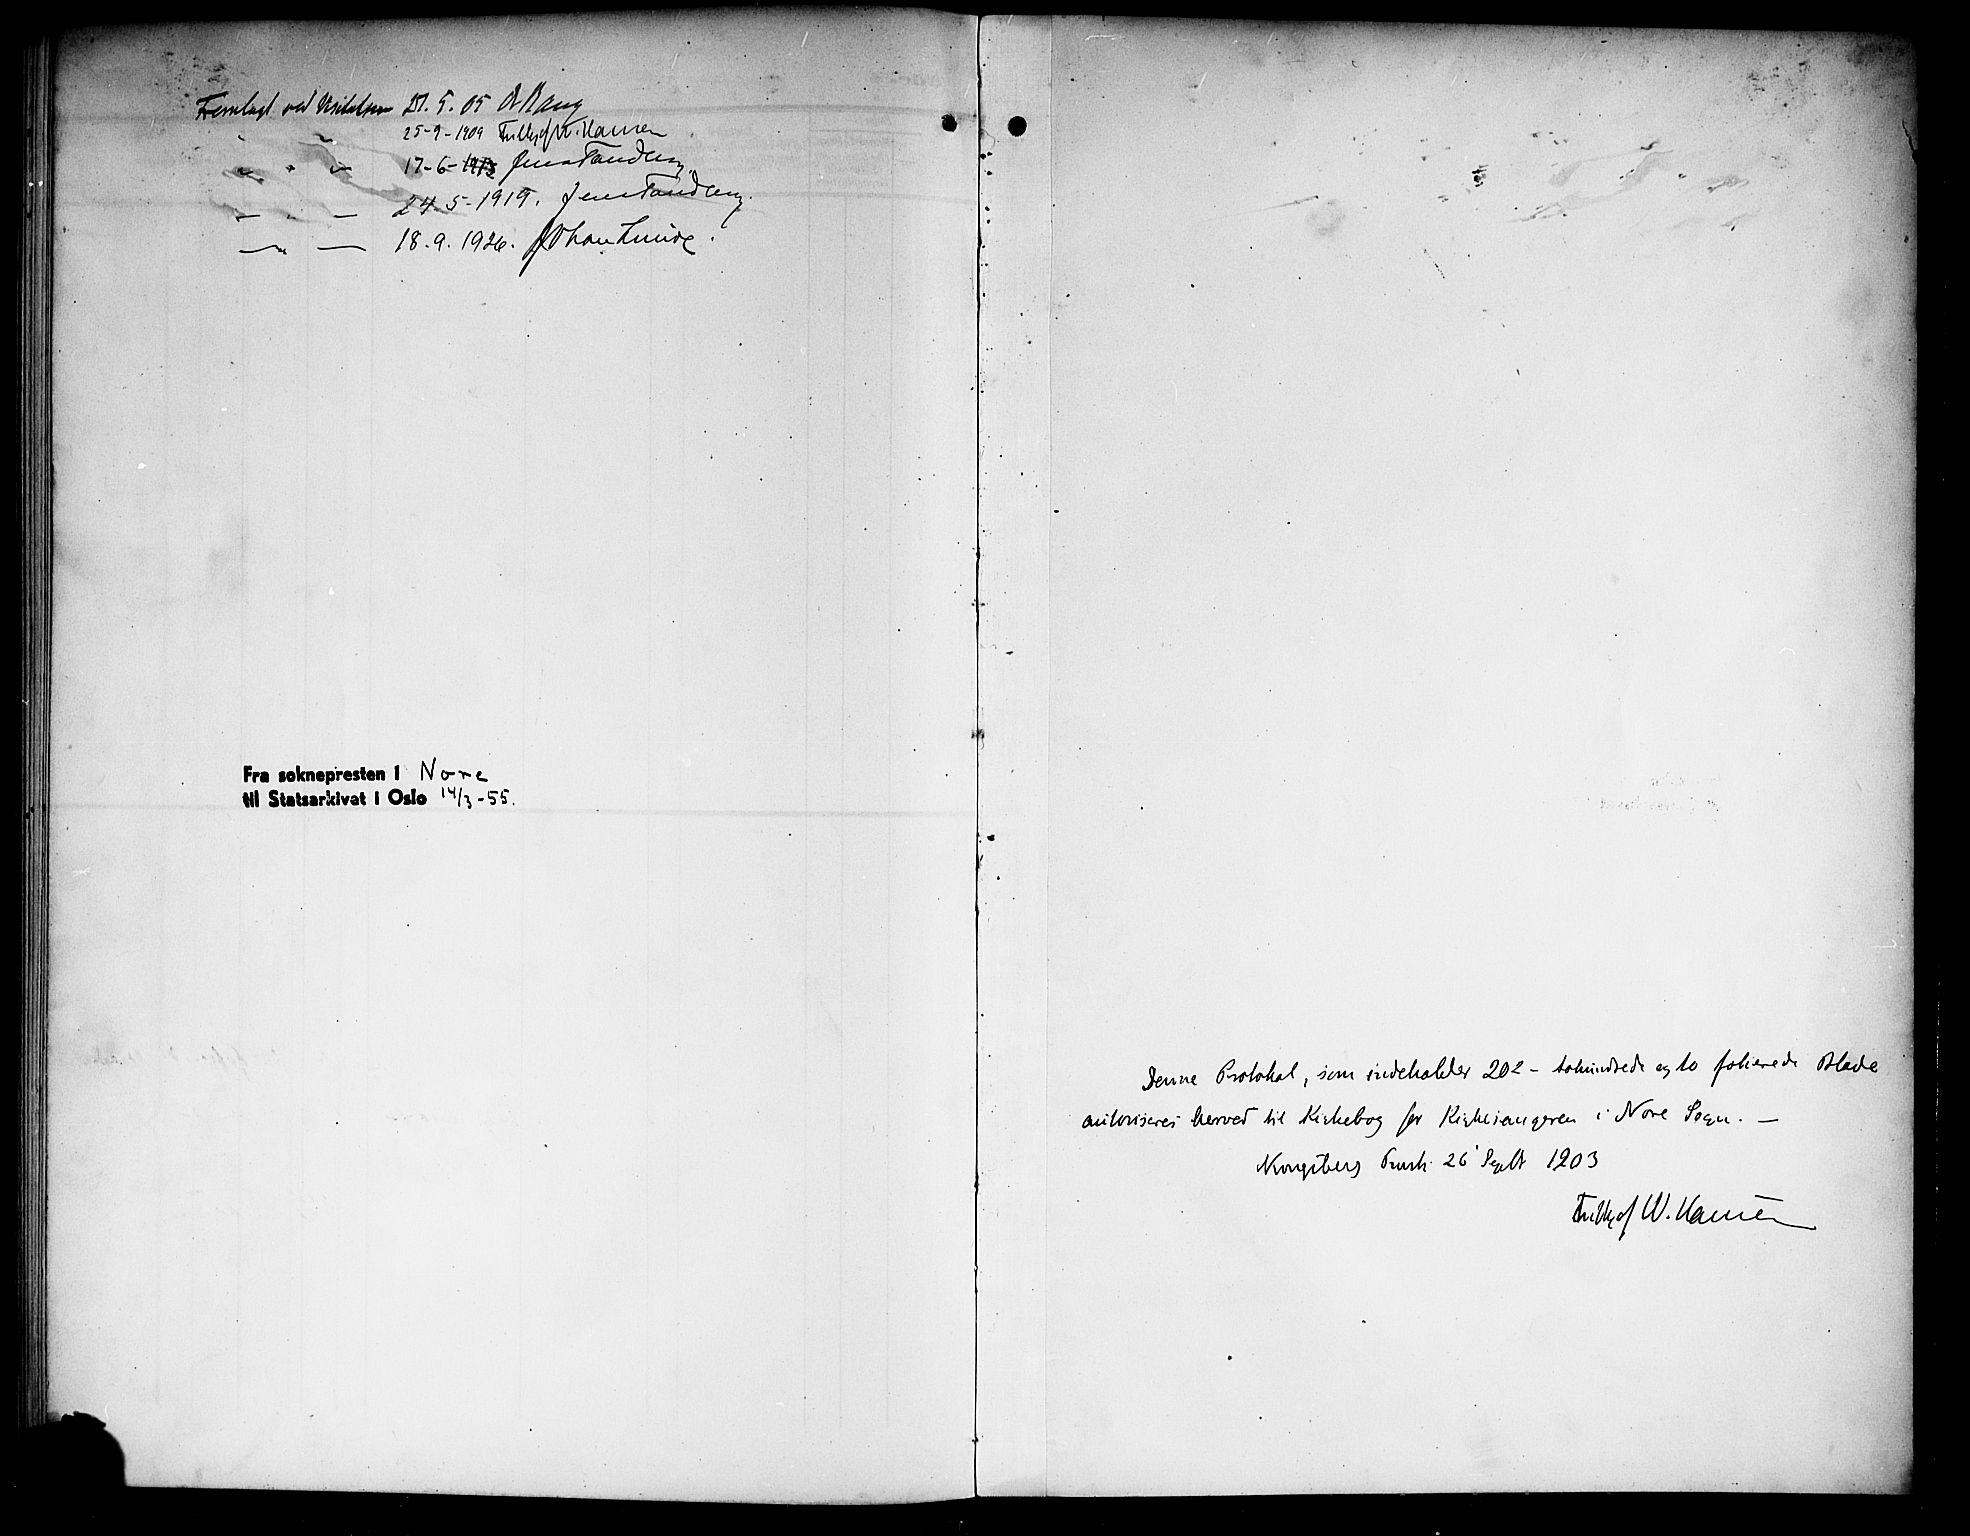 Fremlagt ved Visitatsen 21.5.05 A Bang
" " 25-9-1909 Fritthjof W. Hansen
" " " 17-6-1913 Jens Tandberg.
— " — 24.5-1919. Jens Tandberg.
— " — 18.9.1926. Johan Lunde.
Fra soknepresten i Nore
til Statsarkivet i Oslo 14/3-55.
Denne Protokol, som indeholder 202 - tohundrede og to folierede Blade
autoriseres herved til Kirkebog for Kirkesangeren i Nore Sogn. —
Kongsberg 26 Septb 1903
Fritthjof W. Hansen